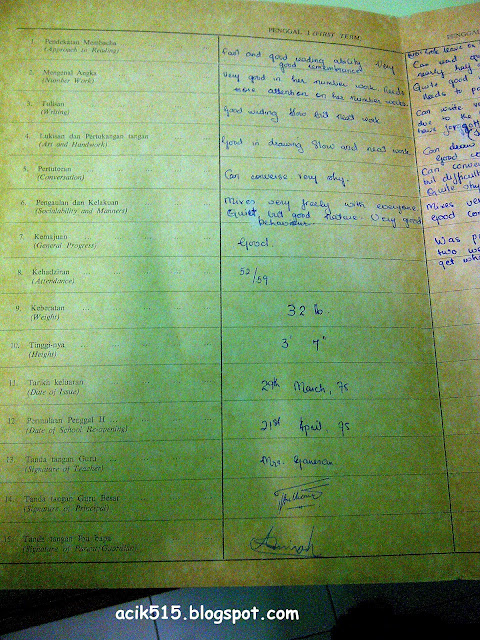 PENGGAL I (FIRST TERM)
PENGGAL
1. Pendekatan Membacha
(Approach in Reading)
Fast and good reading ability. Very
good remembrance
Mengenal Angka
(Number Work)
Very good in her number work. Needs
more attention on her number work.
3. Tulisan
(Writing)
Good writing slow but neat work.
4. Lukisan dan Pertukangan tangan
(Art and Handwork)
Good in drawing slow and neat work.
5. Pertuturan
(Conversation)
Can converse very shy.
6. Pergaulan dan Kelakuan
(Sociability and Manners)
Mixes very freely with everyone
Quiet, but good nature. Very good
behaviour
7. Kemajuan
(General Progress)
Good.
8. Kehadziran
(Attendance)
52/59
9. Keberatan
(Weight)
32 lb.
10. Tinggi-nya
(Height)
3' 7"
11. Tarikh keluaran
(Date of Issue)
29th March, 75
12. Permulaan Penggal II
(Date of School Re-opening)
21st April, 75
13. Tanda tangan Guru
(Signature of Teacher)
Mrs. Ganesan
14. Tanda tangan Guru Besar
(Signature of Principal)
15. Tanda tangan Ibu/bapa
(Signature of Parent/Guardian)
Quite good
needs to
Can write
due to the
have
Can draw
Good
Can
but difficult
Quite shy
Mixes
Good
Was
two
get
acik515.blogspot.com